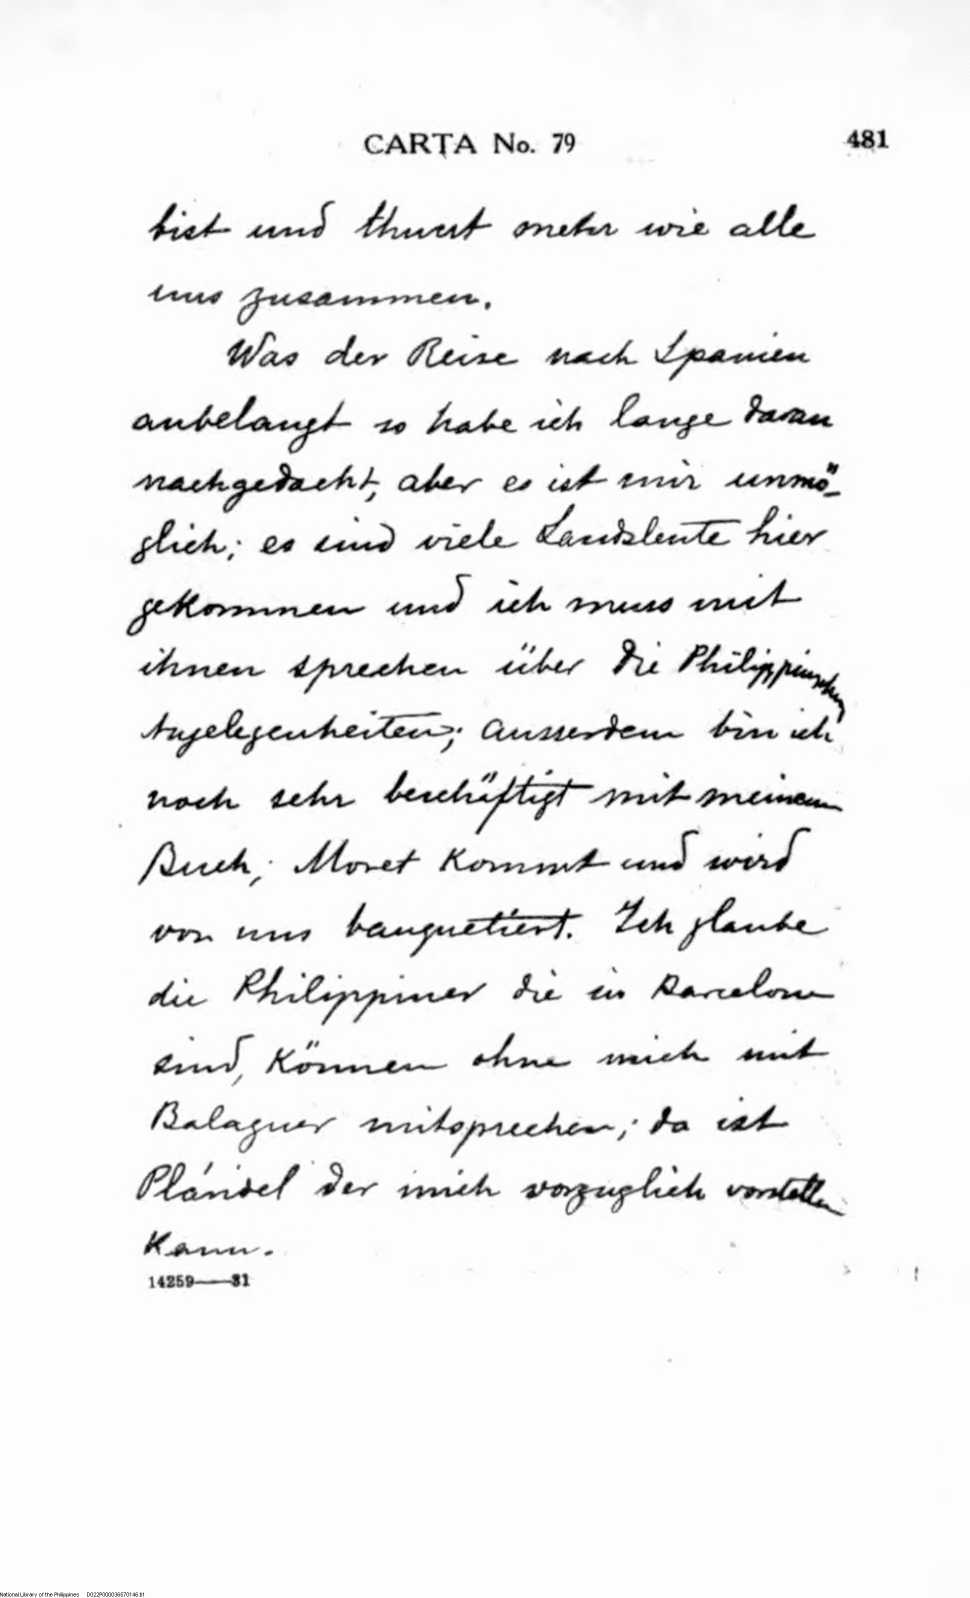 CARTA No. 79
481
bist und thuest mehr wie alle
uns zusammen.
Was der Reise nach Spanien
anbelangt so habe ich lange daran
nachgedacht, aber es ist mir unmö-
glich; es sind viele Landsleute hier
gekommen und ich muss mit
ihnen sprechen über die Philippinschen
Angelegenheiten; ausserdem bin ich
noch sehr beschäftigt mit meinem
Buch; Moret kommt und wird
von uns banquetiert. Ich glaube
die Philippiner die in Barcelona
sind, können ohne mich mit
Balaguer mitsprechen; da ist
Pláridel der mich vorzuglich vorstellen
kann.
14259——31
National Library of the Philippines D022P000036570146.tif